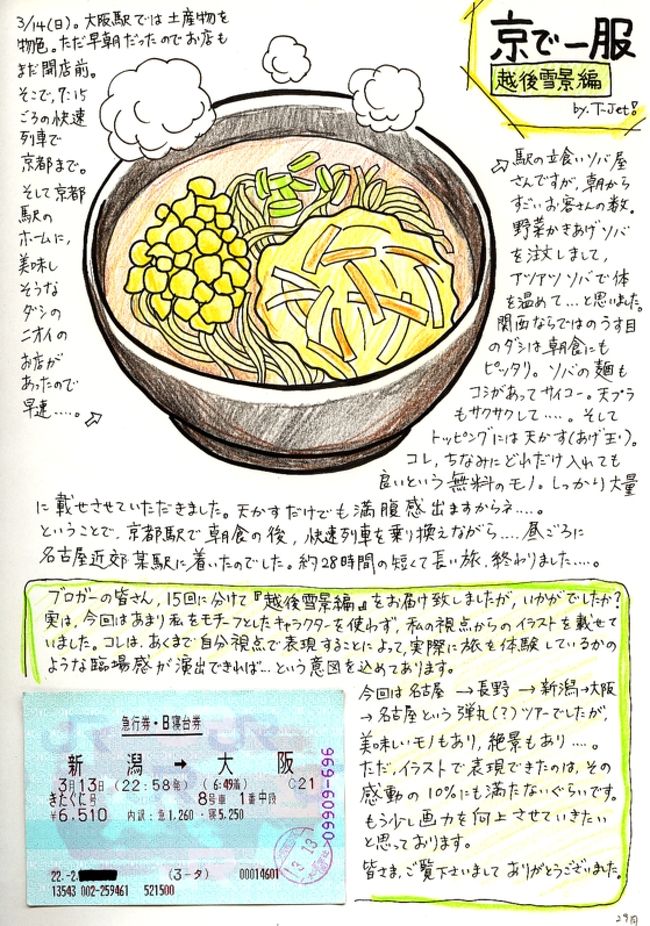 3/14(日)。大阪駅では土産物を
物色。ただ早朝だったのでお店も
まだ開店前。
そこで、7:15
ごろの快速
列車で
京都まで。
そして京都
駅の
ホームに、
美味し
そうな
ダシの
ニオイの
お店が
あったので
早速....。
京で一服
越後雪景編
by. T-Jet!
駅の立食いソバ屋
さんですが、朝から
すごいお客さんの数。
野菜かきあげソバ
を注文しまして、
アツアツソバで体
を温めて...と思いました。
関西ならではのうす目
のダシは朝食にも
ピッタリ。ソバの麺も
コシがあってサイコー。天プラ
もサクサクして.....。そして
トッピングには天かす(あげ玉)。
コレ、ちなみにどれだけ入れても
良いという無料のモノ。しっかり大量
に載せさせていただきました。天かすだけでも満腹感出ますからネ....。
ということで、京都駅で朝食の後、快速列車を乗り換えながら....昼ごろに
名古屋近郊某駅に着いたのでした。約28時間の短くて長い旅、終わりました....。
ブロガーの皆さん、15回に分けて『越後雪景編』をお届け致しましたが、いかがでしたか?
実は、今回はあまり私をモチーフとしたキャラクターを使わず、私の視点からのイラストを載せて
いました。コレは、あくまで自分視点で表現することによって、実際に旅を体験しているかの
ような臨場感が演出できれば...という意図を込めてあります。
今回は名古屋→長野→新潟→大阪
→名古屋という弾丸(?)ツアーでしたが、
美味しいモノもあり、絶景もあり....。
ただ、イラストで表現できたのは、その
感動の10%にも満たないぐらいです。
もう少し画力を向上させていきたい
と思っております。
皆さま、ご覧下さいまして ありがとうございました。
急行券・B寝台券
新潟 → 大阪
3月13日 (22:58発) (6:49着) C21
きたぐに号 8号車 1番中段
¥6,510 内訳:急1,260・寝5,250
22.-2.
(3-タ) 00014601
13543 002-259461 521500
3.13